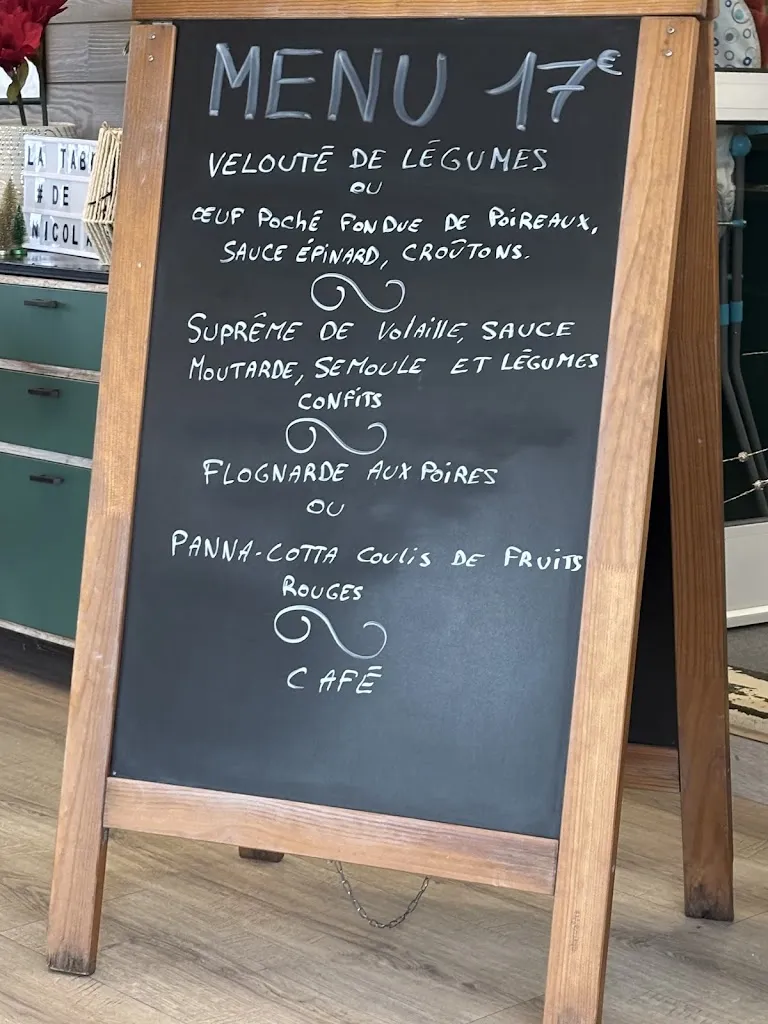 MENU 17€
VELOUTÉ DE LÉGUMES
OU
ŒUF POCHÉ FONDUE DE POIREAUX,
SAUCE ÉPINARD, CROÛTONS.
SUPRÊME DE VOLAILLE, SAUCE
MOUTARDE, SEMOULE ET LÉGUMES
CONFITS
FLOGNARDE AUX POIRES
OU
PANNA-COTTA COULIS DE FRUITS
ROUGES
CAFÉ
LA TAB
# DE
NICOL